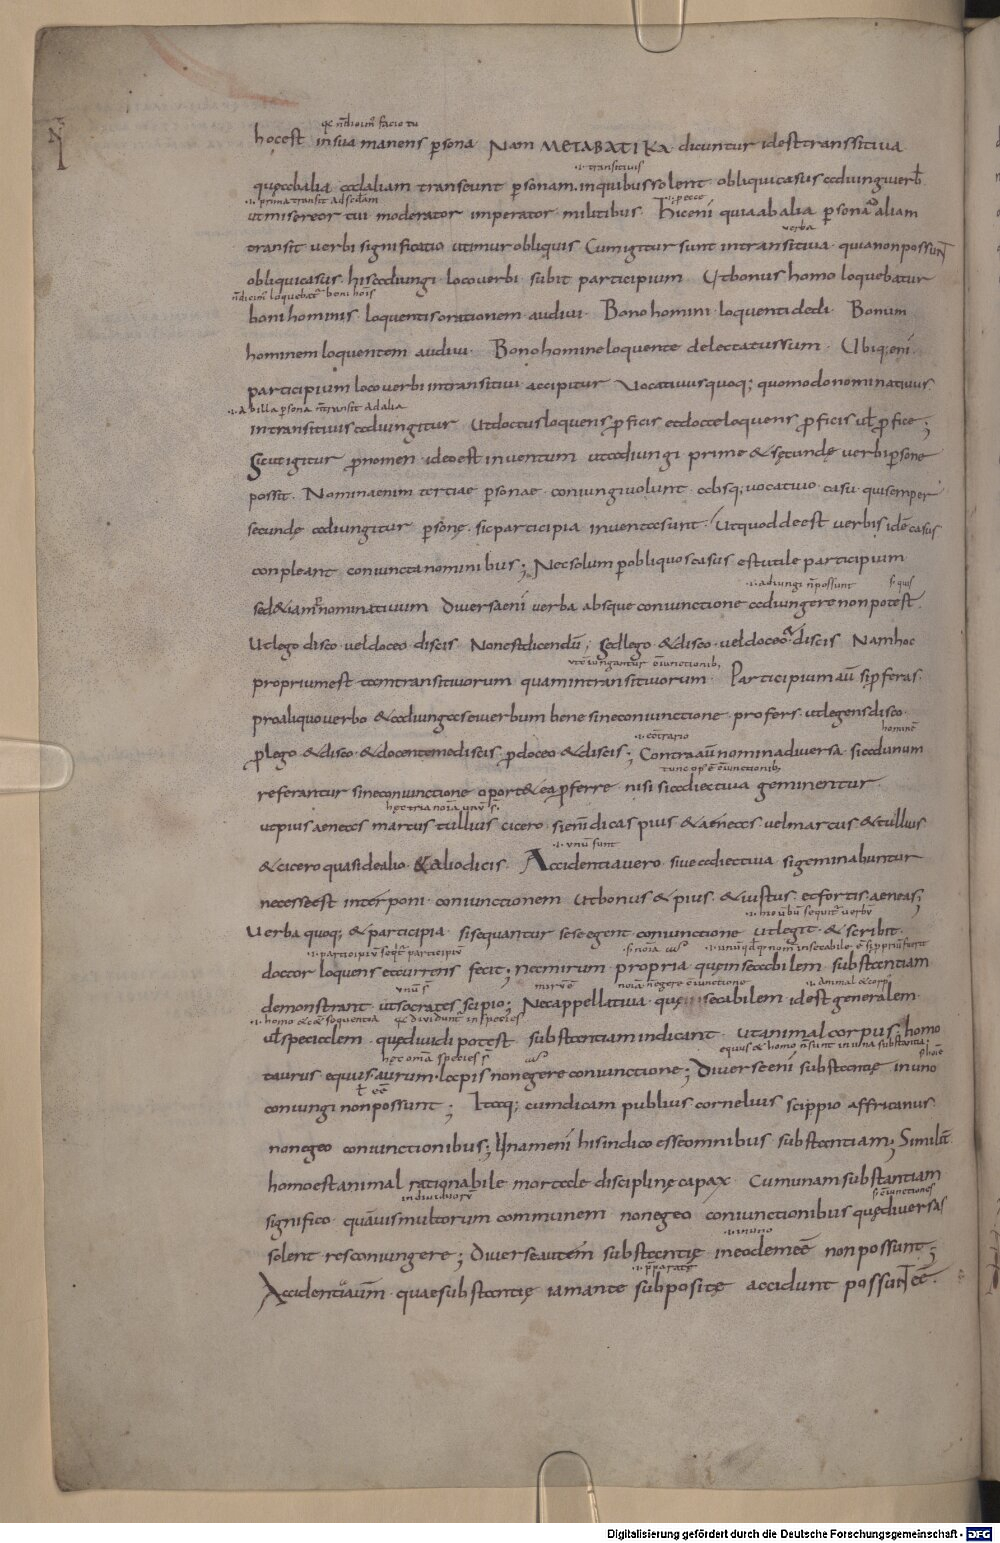 qc n̄ dicim' facio tu
hoc est in sua manens p̱sona Nam METABATIKA· dicuntur id est transsitiua
.i. transitiuis
quę ab alia ad aliam transeunt p̱sonam. in quibus solent obliqui casus adiungi uerb̄
.i. prima transit ad scdam
ut misereor tui moderator imperator militibus Hic eni quia ab alia p̱sona ad aliam
uerba
transit uerbi significatio utimur obliquis Cum igitur sunt intransitiua· quia non possunt
obliqui casus· his adiungi· loco uerbi subit participium Ut bonus homo loquebatur
n̄ dicim' loquebat' boni hois
boni hominis loquentis orationem audiui· Bono homini· loquenti dedi· Bonum
hominem loquentem audiui· Bono homine loquente delectatus sum· Ubiq; eni·
participium loco uerbi intransitiui accipitur Uocatiuus quoq; quomodo nominatiuus
.i. ab illa p̱sona n̄ transit ad alia
intransitiuis adiungitur Ut doctus loquens p̱ficis et docte loquens p̱ficis uł p̱fice;
Sicut igitur p̱nomen· ideo est inuentum ut adiungi prime & secundę uerbi p̱sone
possit· Nomina enim tertiae p̱sonae· coniungi uolunt· absq; uocatiuo· casu· qui semper
secundę adiungitur p̱sonę· sic participia inuenta sunt· Ut quod deest uerbis id ē casus
conpleant coniuncta nominibus; Nec solum p̱ obliquos casus est utile participium
.i. adiungi n̄ possunt
sed & iam nominatiuum Diuersa eni uerba absque coniunctione adiungere non potest
Ut lego disco· uel doceo· discis Non est dicendū; sed lego· & disco· uel doceo & discis Nam hoc
ut c̄iungantur c̄iunctionib;
proprium est tam transitiuorum quam intransitiuorum· Participium aū si p̱feras·
pro aliquo uerbo & adiungas ei uerbum bene sine coniunctione· profers· ut legens disco·
.i. econtrario
p̱ lego· & disco· & docente me discis· p̱ doceo & discis; Contra aū nomina diuersa· si ad unum
tunc op' ē c̄iunctionib;
referantur sine coniunctione oport& ea p̱ferre· nisi si adiectiua geminentur·
hęc tria noīa unū s̄·
ut pius aeneas marcus tullius cicero· si enī dicas pius & aeneas uel marcus & tullius
.i. unū sunt
& cicero quasi de alio & alio dicis· Accidentia uero· siue adiectiua· si geminabuntur
necesse est interponi· coniunctionem Ut bonus & pius· & iustus· et fortis· aeneas;
Uerba quoq; & participia· si sequantur sese egent coniunctione ut legit· & scribit·
.i. participiū seq̄t' participiū
doctor loquens et currens fecit; nam mirum propria quę insecabilem substantiam
unū s̄
demonstrant· ut socrates scipio; Nec appellatiua· quę secabilem id est generalem
uł specialem· quę diuidi potest substantiam indicant· ut animal corpus homo
hęc omā species s̄
taurus equus aurum· lapis non egere coniunctione; Diuersę eni substantię in uno
ł eē
coniungi non possunt; Itaq; cum dicam publius cornelius scippio affricanus·
non egeo coniunctionibus; Unam eni his indico esse omnibus substantiam; Similit̄
homo est animal rationabile mortale disciplinę capax· Cum unam substantiam
indiuiduorū
significo· quamuis multorum communem non egeo coniunctionibus quę diuersas
.i. in uno
solent res coniungere; Diuersę autem substantię in eodem eē non possunt;
Accidentia uērū quae substantię iam ante suppositę accidunt possunt eē·
Digitalisierung gefördert durch die Deutsche Forschungsgemeinschaft - DFG